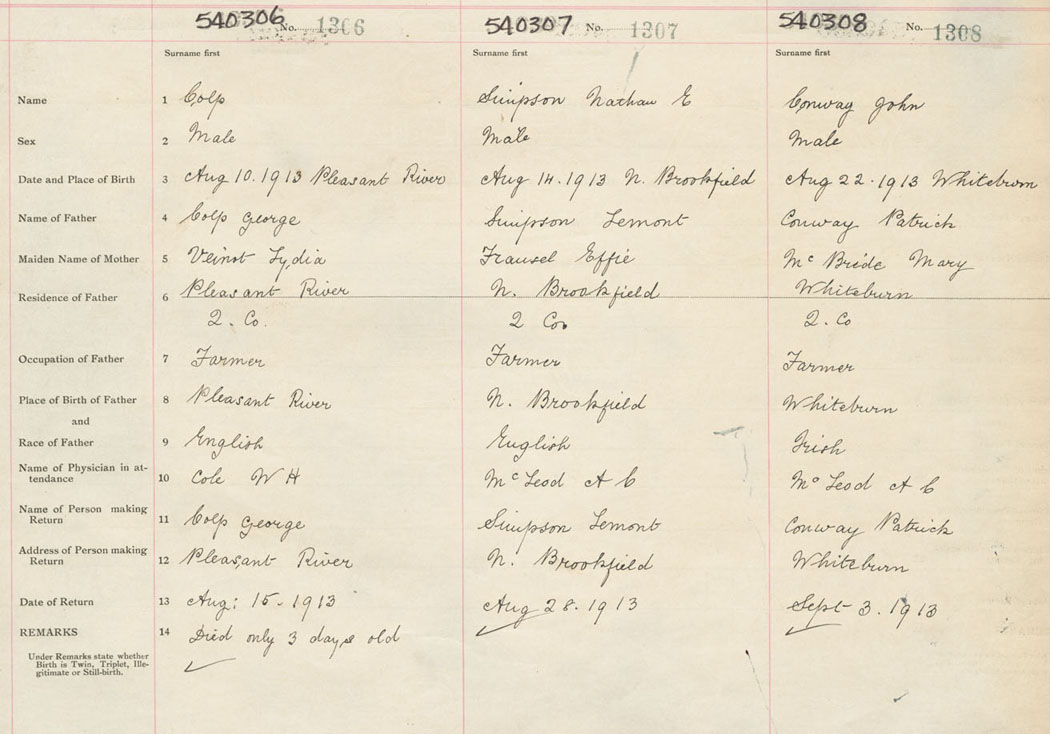 540306 No. 1306 540307 No. 1307 540308 No. 1308
Surname first Surname first Surname first
Name 1 Colp Simpson Nathan E Conway John
Sex 2 Male Male Male
Date and Place of Birth 3 Aug 10.1913 Pleasant River Aug 14.1913 N. Brookfield Aug 22.1913 Whiteburn
Name of Father 4 Colp George Simpson Lemont Conway Patrick
Maiden Name of Mother 5 Veinot Lydia Effie McBride Mary
Residence of Father 6 Pleasant River N. Brookfield Whiteburn
Q. Co. Q Co. Q. Co
Occupation of Father 7 Farmer Farmer Farmer
Place of Birth of Father 8 Pleasant River N. Brookfield Whiteburn
and
Race of Father 9 English English Irish
Name of Physician in at-
tendance 10 Cole W H McLeod A C McLeod A C
Name of Person making
Return 11 Colp George Simpson Lemont Conway Patrick
Address of Person making
Return 12 Pleasant River N. Brookfield Whiteburn
Date of Return 13 Aug: 15-1913 Aug 28.1913 Sept 3.1913
REMARKS 14 Died only 3 days old
Under Remarks state whether
Birth is Twin, Triplet, Ille-
gitimate or Still-birth.